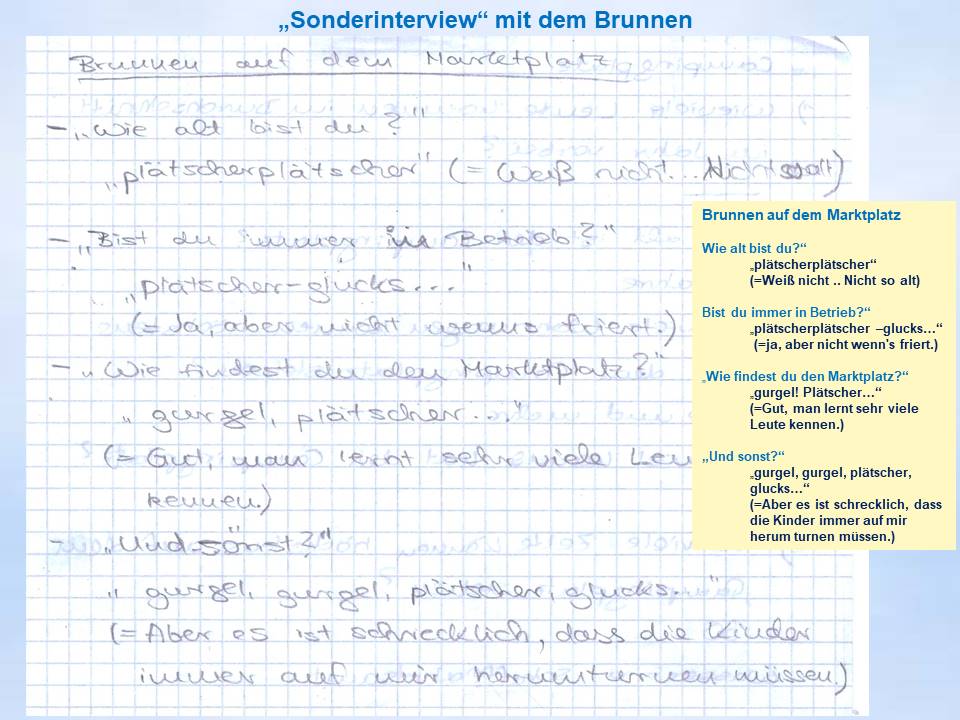 „Sonderinterview“ mit dem Brunnen
Brunnen auf dem Marktplatz
– „Wie alt bist du?“
„plätscherplätscher“ (= Weiß nicht... Nicht so alt)
– „Bist du immer in Betrieb?“
„plätscher-glucks...“
(= Ja, aber nicht wenns friert.)
– „Wie findest du den Marktplatz?“
„gurgel, plätscher...“
(= Gut, man lernt sehr viele Leu
kennen.)
– „Und sonst?“
„gurgel, gurgel, plätscher, glucks.“
(= Aber es ist schrecklich, dass die Kinder
immer auf mir herumturnen müssen.)
Brunnen auf dem Marktplatz
Wie alt bist du?“
„plätscherplätscher“
(=Weiß nicht .. Nicht so alt)
Bist du immer in Betrieb?“
„plätscherplätscher –glucks…“
(=ja, aber nicht wenn's friert.)
„Wie findest du den Marktplatz?“
„gurgel! Plätscher…“
(=Gut, man lernt sehr viele
Leute kennen.)
„Und sonst?“
„gurgel, gurgel, plätscher,
glucks…“
(=Aber es ist schrecklich, dass
die Kinder immer auf mir
herum turnen müssen.)